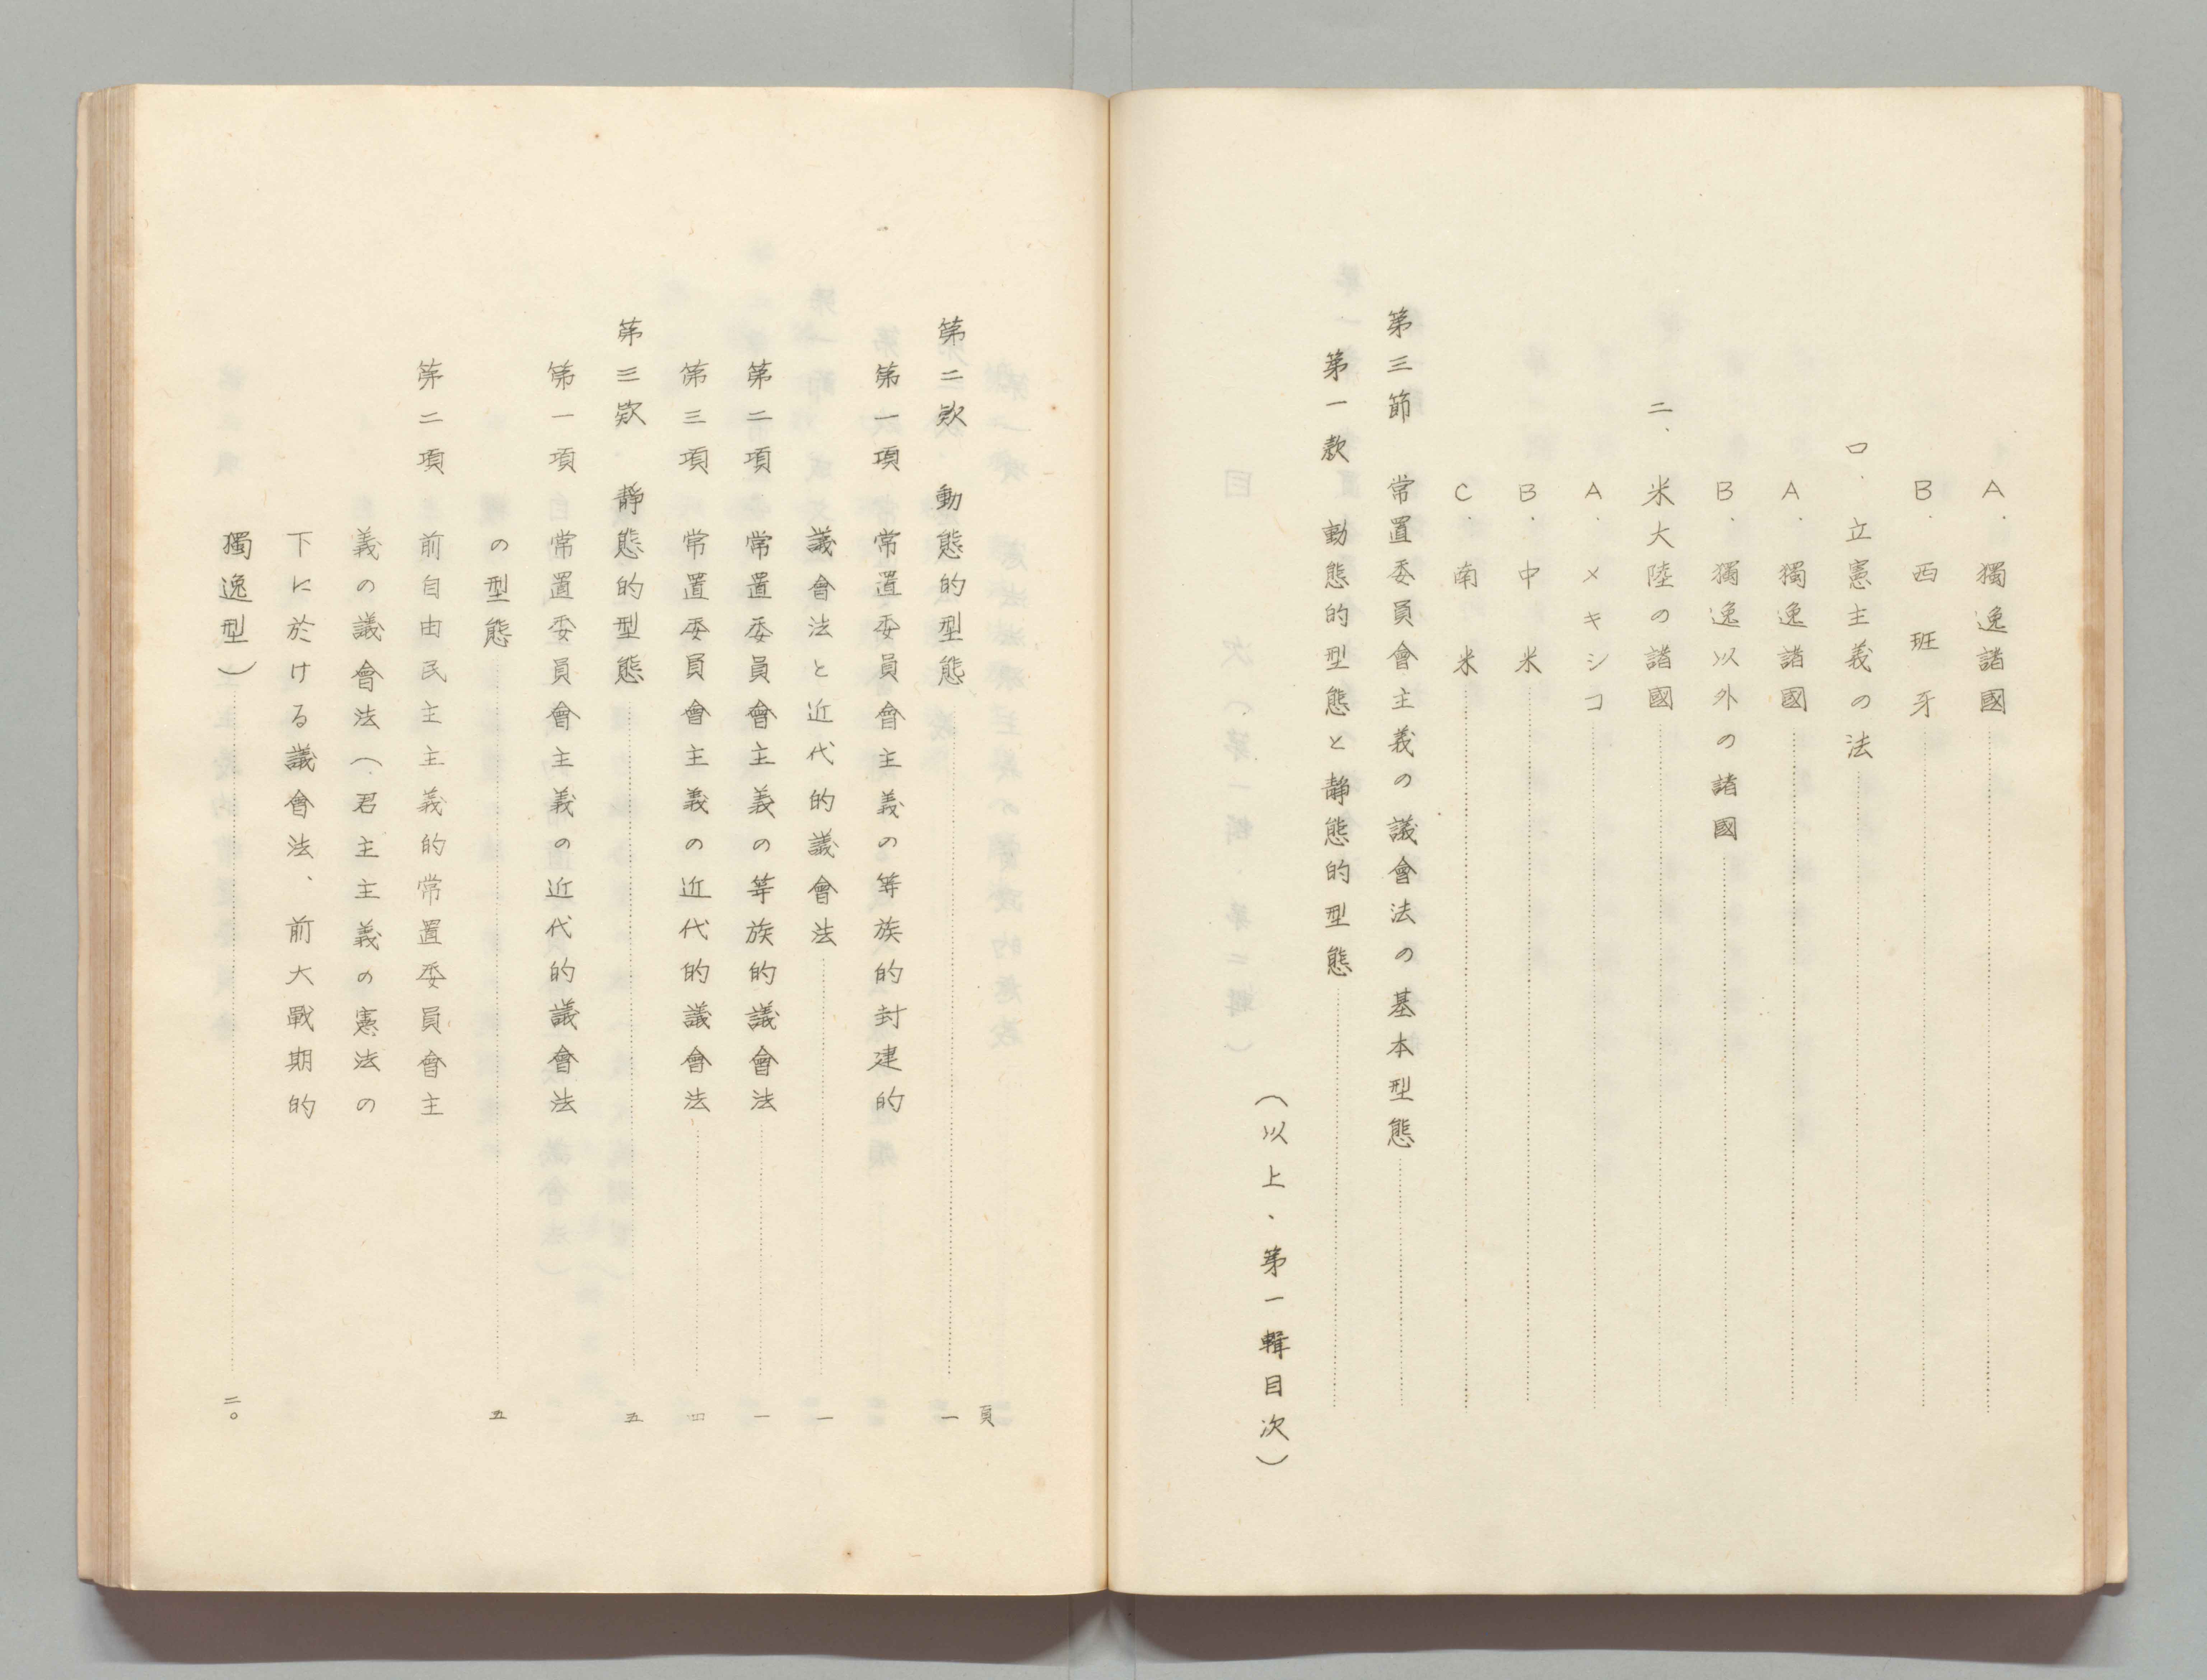 A．獨逸諸國
B．西班牙
ロ．立憲主義の法
A．獨逸諸國
B．獨逸以外の諸國
二．米大陸の諸國
A．メキシコ
B．中米
C．南米
第三節　常置委員會主義の議會法の基本型態
第一款　動態的型態と静態的型態
（以上、第一輯目次）
頁
第二款　動態的型態　一
第一項　常置委員會主義の等族的封建的
議會法と近代的議會法　一
第二項　常置委員會主義の等族的議會法　一
第三項　常置委員會主義の近代的議會法　四
第三款　静態的型態　五
第一項　常置委員會主義の近代的議會法
の型態　五
第二項　前自由民主主義的常置委員會主
義の議會法（君主主義の憲法の
下に於ける議會法、前大戰期的
獨逸型）　二〇